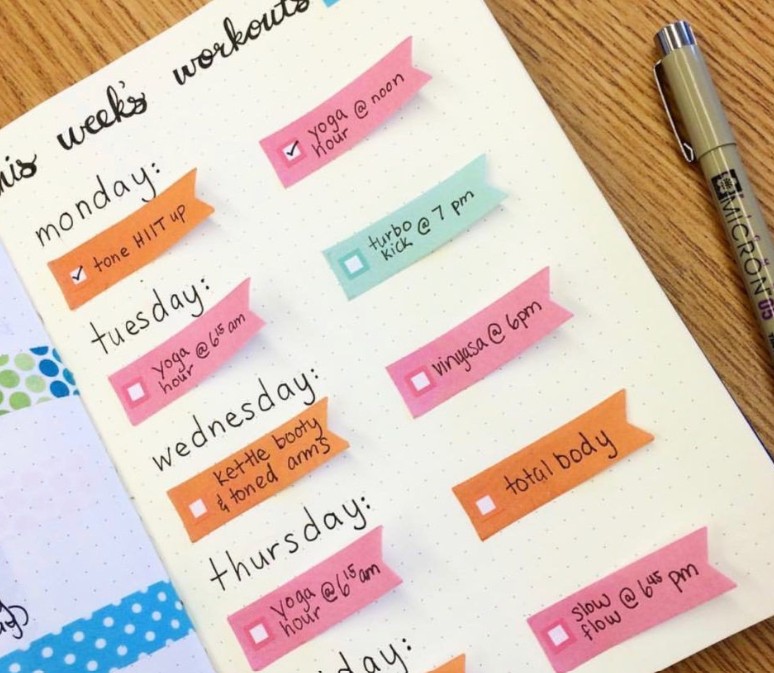 this week's workouts
monday:
tone HIIT up
yoga
hour @ noon
tuesday:
yoga
hour @ 6¹⁵ am
turbo
kick @ 7 pm
wednesday:
kettle booty
& toned arms
vinyasa @ 6pm
thursday:
yoga
hour @ 6¹⁵ am
total body
slow
flow @ 6⁴⁵ pm
day:
MICRON 05